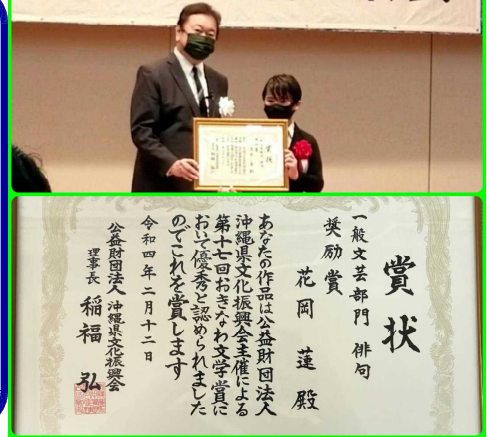 賞状
一般文芸部門 俳句
奨励賞
花岡 蓮 殿
あなたの作品は公益財団法人
沖縄県文化振興会主催による
第十七回おきなわ文学賞に
おいて優秀と認められました
のでこれを賞します
令和四年二月十二日
公益財団法人 沖縄県文化振興会
理事長 稲福 弘